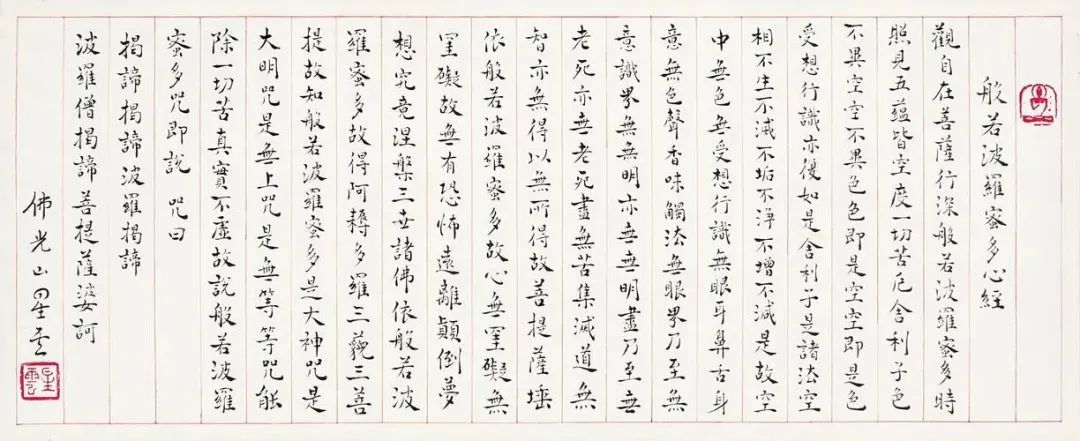 般若波羅蜜多心經
觀自在菩薩行深般若波羅蜜多時
照見五蘊皆空度一切苦厄舍利子色
不異空空不異色色即是空空即是色
受想行識亦復如是舍利子是諸法空
相不生不滅不垢不淨不增不減是故空
中無色無受想行識無眼耳鼻舌身
意無色聲香味觸法無眼界乃至無
意識界無無明亦無無明盡乃至無
老死亦無老死盡無苦集滅道無
智亦無得以無所得故菩提薩埵
依般若波羅蜜多故心無罣礙無
罣礙故無有恐怖遠離顛倒夢
想究竟涅槃三世諸佛依般若波
羅蜜多故得阿耨多羅三藐三菩
提故知般若波羅蜜多是大神咒是
大明咒是無上咒是無等等咒能
除一切苦真實不虛故說般若波羅
蜜多咒即說 咒曰
揭諦揭諦波羅揭諦
波羅僧揭諦 菩提薩婆訶
佛光山星云
星雲